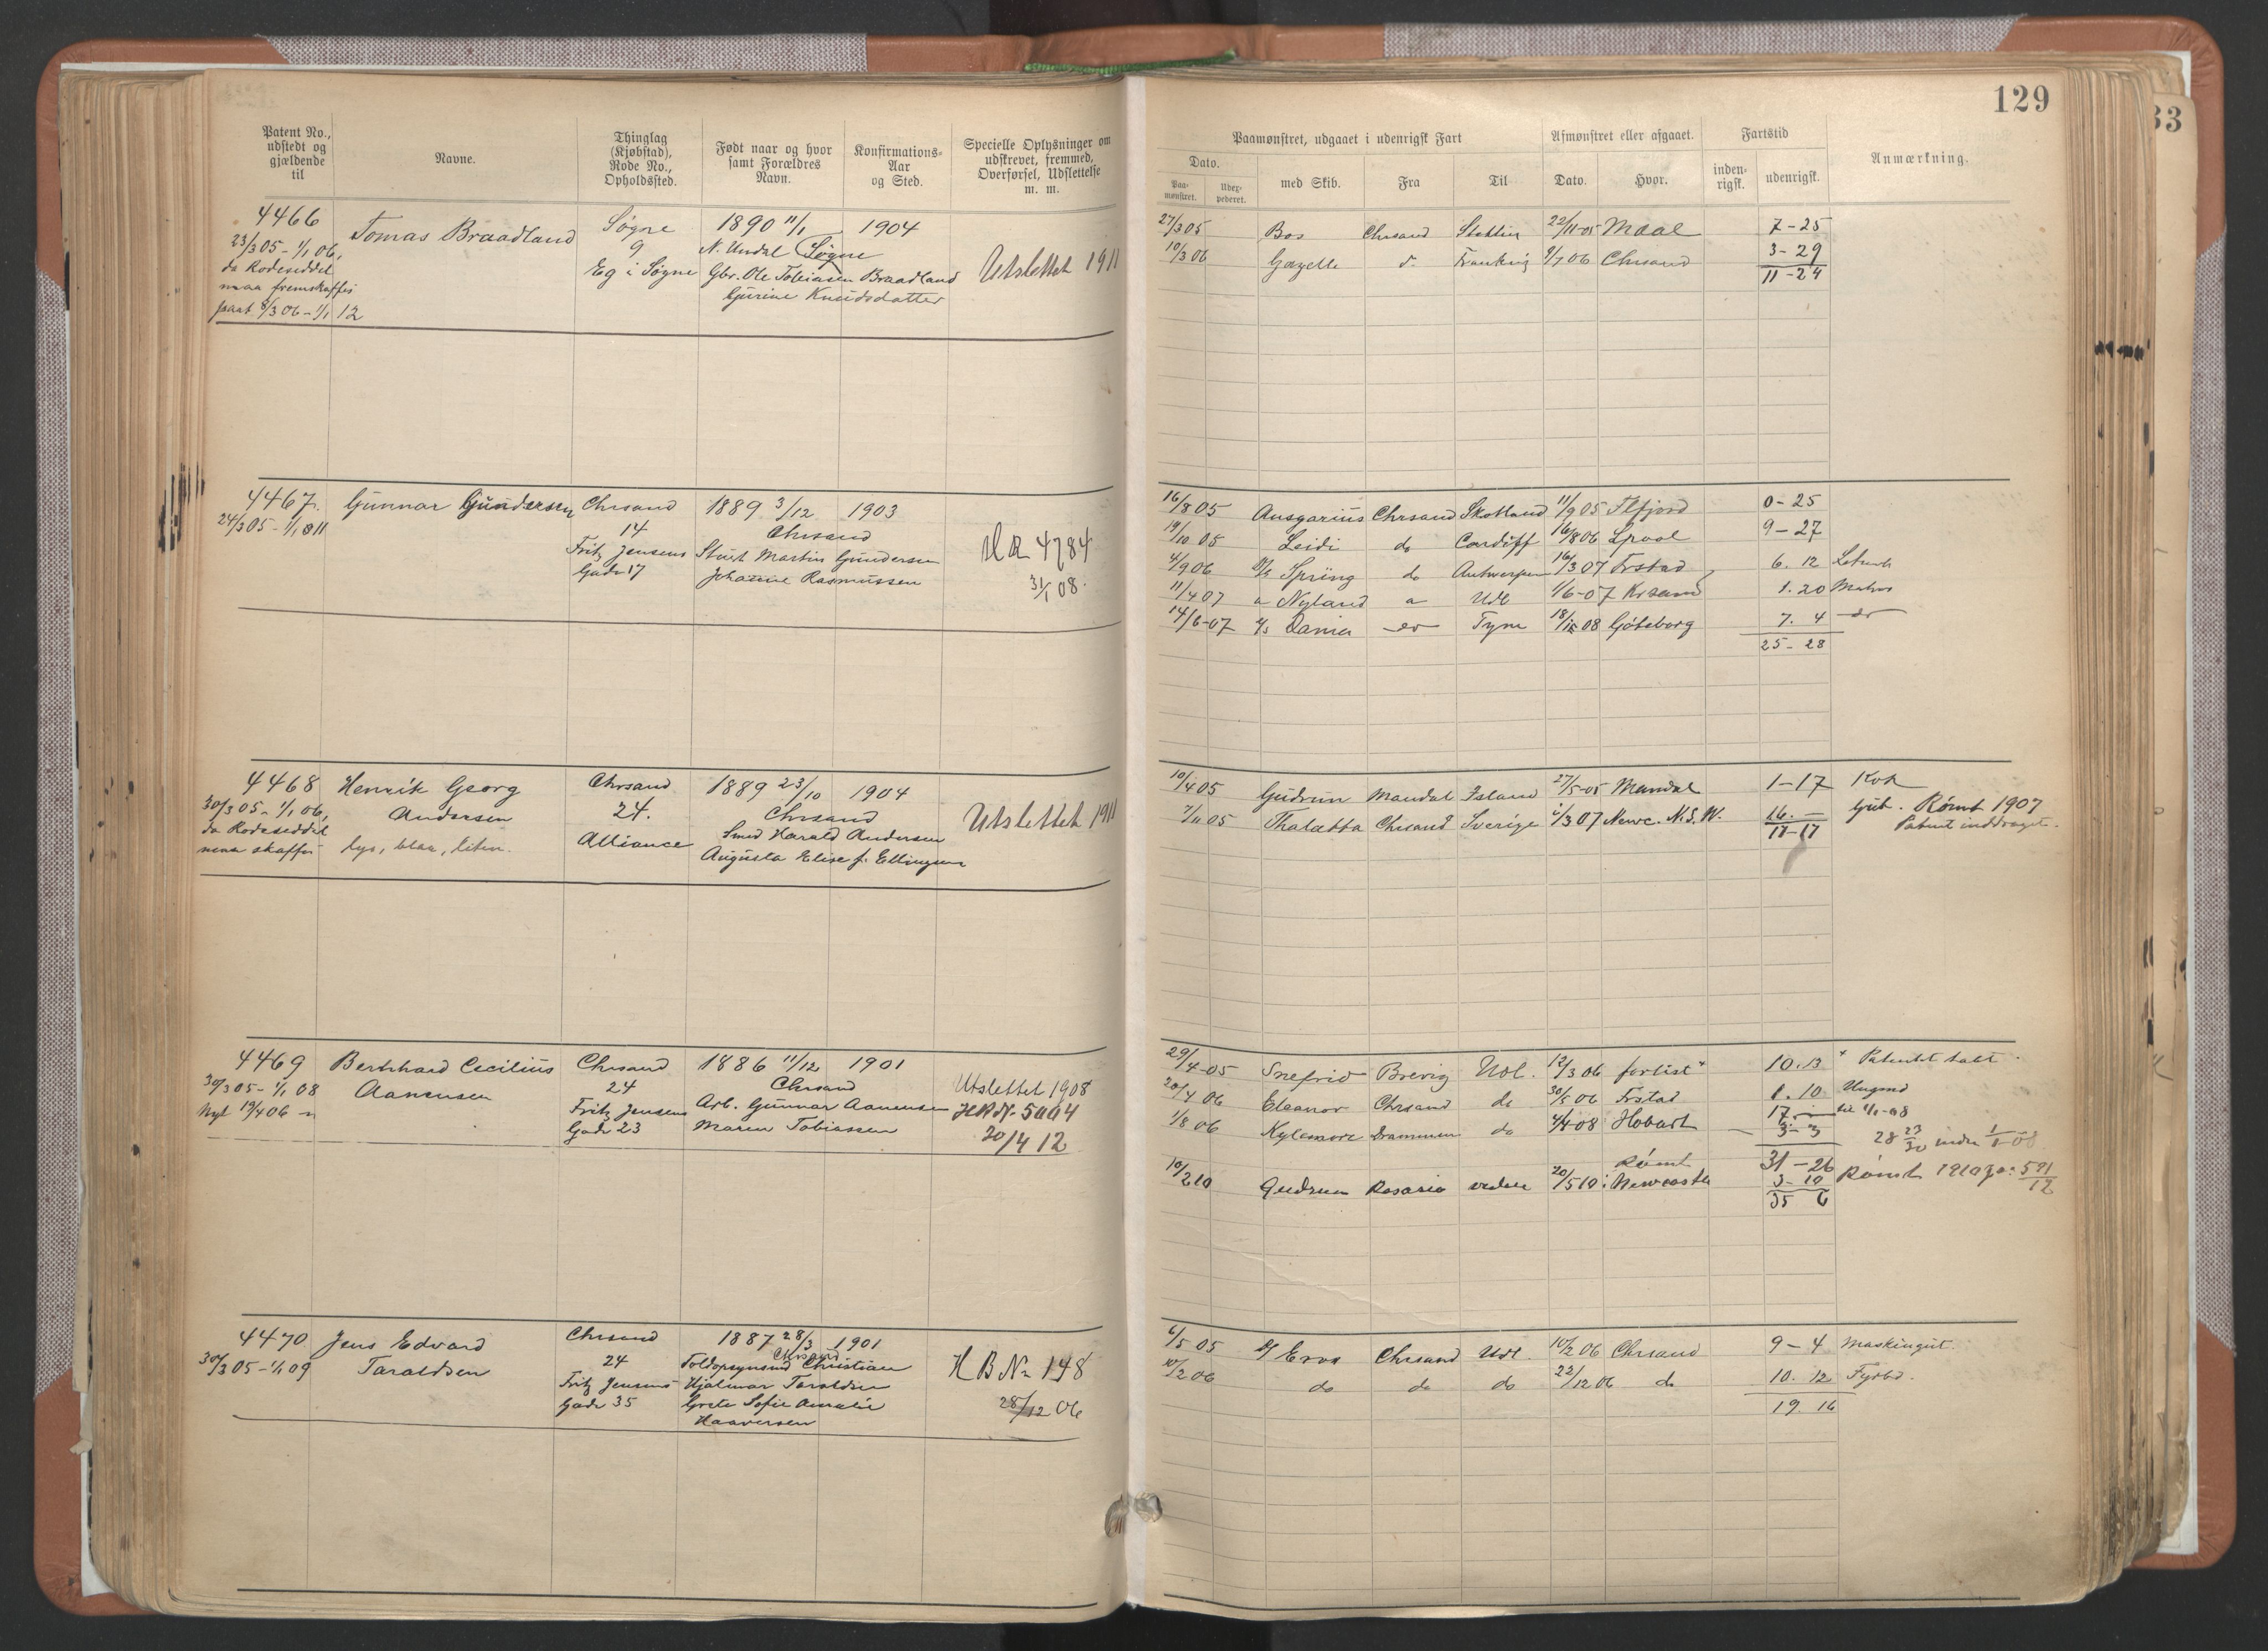 129
33
Patent No., udstedt og gjældende til
Navne.
Thinglag (Kjøbstad), Rode No., Opholdssted.
Født naar og hvor samt Forældres Navn.
Konfirmations-Aar og Sted.
Specielle Oplysninger om udskrevet, fremmed, Overførsel, Udslettelse m. m.
Paamønstret, udgaaet i udenrigsk Fart
Afmønstret eller afgaaet.
Fartstid
Anmærkning.
Dato.
Paa-mønstret.
Udex-pederet.
med Skib.
Fra
Til
Dato.
Hvor.
inden-rigsk.
udenrigsk.
4466
23/3 05 - 1/1 06,
da Rodeseddel
maa fremskaffes
paat 8/3 06 - 1/1 12
Tomas Braadland
Søgne
9
Eg i Søgne
1890 11/1 1904
N. Undal Søgne
Gbr. Ole Tobiasen Braadland
Gurine Knudsdatter
Utslettet 1911
27/3 05 Bos Chrsand Stettin 22/11-05 Maal 7-25
10/3 06 Gazelle d. Frankrig 9/7 06 Chrsand 3-29
11-24
4467.
24/3 05 - 1/1 811
Gunnar Gundersen
Chrsand
14
Fritz Jensens
Gade 17
1889 3/12 1903
Chrsand
Stuert Martin Gundersen
Johanne Rasmussen
H R 4784
31/1 08.
16/8 05 Ansgarius Chrsand Skotland 11/9 05 Flfjord 0-25
19/10 05 Leidi do Cardiff 16/8 06 Lpool 9-27
4/9 06 Spring do Antwerpen 16/3 07 Frstad 6. 12 Letmatr
11/4 07 Nyland Udl 1/6-07 Krsand 1. 20 Matros
14/6-07 Dania do Tyne 18/1 08 Göteborg 7. 4 do
25-28
4468
30/3 05 - 1/1 06,
da Rodeseddel
maa skaffes
Henrik Georg
Andersen
lys, blaa, liten.
Chrsand
24.
Alliance
1889 23/10 1904
Chrsand
Smed Harald Andersen
Augusta Elise f. Ellingsen
Utslettet 1911
10/4 05 Gudrun Mandal Island 27/5-05 Mandal 1-17 Kok
7/11 05 Thalatta Chrsand Sverige 1/3 07 Newc. N.S.W. 16.- Gut. Rømt 1907
17-17 Patent inddraget.
4469
30/3 05 - 1/1 08
Nyt 19/4 06
Bernhard Cecilius
Aanensen
Chrsand
24
Fritz Jensens
Gade 23
1886 11/12 1901
Chrsand
Arb. Gunnar Aanensen
Maren Tobiassen
Utslettet 1908
HR N. 5004
20/4 12
29/4-05 Snefrid Brevig Udl. 12/3 06 forlist* 10.13 * Patentet tabt.
20/4 06 Eleanor Chrsand do 30/5 06 Frstad 1.10 Ungmd
1/8 06 Kylemore Drammen do 4/4 08 Hobart 17.- til 1/1-08
3-3 28 23/30 inden 1/1-08
31-26
10/2 10 Gudrun Rosario 20/5 10 Rømt i Newcastle 3-10 Rømt 1910
35 6
4470
30/3 05 - 1/1 09
Jens Edvard
Taraldsen
Chrsand
24
Fritz Jensens
Gade 35
1887 28/3 1901
Chrsand
Toldopsynsmd Christian
Hjalmar Taraldsen
Grete Sofie Amalie
Haaversen
H B No 148
28/12 06
6/5 05 Eros Chrsand Udl. 10/2 06 Chrsand 9-4 Maskingut.
10/2 06 do do do 22/12 06 do 10. 12 Fyrbd.
19. 16